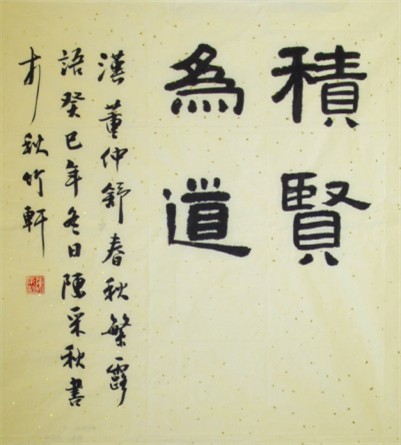 積賢
為道
漢董仲舒春秋繁露
語癸巳年冬日陳采秋書
於秋竹軒